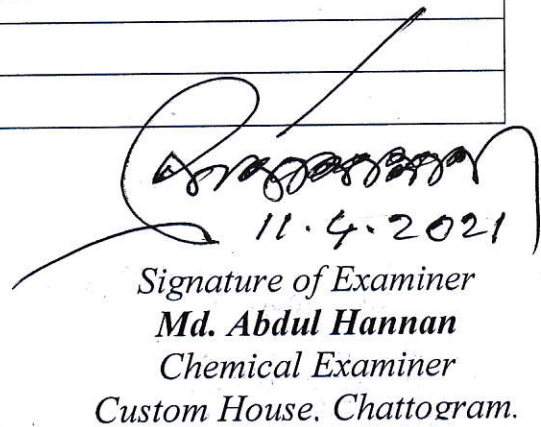 11.4.2021
Signature of Examiner
Md. Abdul Hannan
Chemical Examiner
Custom House, Chattogram.